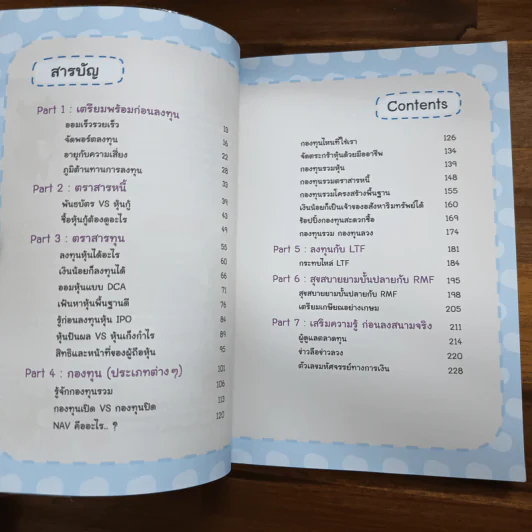 สารบัญ
Part 1 : เตรียมพร้อมก่อนลงทุน
ออมเร็วรวยเร็ว 13
จัดพอร์ตลงทุน 16
อายุกับความเสี่ยง 22
ภูมิต้านทานการลงทุน 28
Part 2 : ตราสารหนี้ 33
พันธบัตร VS หุ้นกู้ 39
ซื้อหุ้นกู้ต้องดูอะไร 43
Part 3 : ตราสารทุน 49
ลงทุนหุ้นได้อะไร 55
เงินน้อยก็ลงทุนได้ 60
ออมหุ้นแบบ DCA 66
เฟ้นหาหุ้นพื้นฐานดี 71
รู้ก่อนลงทุนหุ้น IPO 76
หุ้นปันผล VS หุ้นเก็งกำไร 84
สิทธิและหน้าที่ของผู้ถือหุ้น 89
95
Part 4 : กองทุน (ประเภทต่างๆ) 101
รู้จักกองทุนรวม 106
กองทุนเปิด VS กองทุนปิด 113
NAV คืออะไร.. ? 120
Contents
กองทุนไหนที่ใช่เรา 126
จัดตระกร้าหุ้นด้วยมืออาชีพ 134
กองทุนรวมหุ้น 139
กองทุนรวมตราสารหนี้ 148
กองทุนรวมโครงสร้างพื้นฐาน 155
เงินน้อยก็เป็นเจ้าของอสังหาริมทรัพย์ได้ 160
ช้อปปิ้งกองทุนสะดวกซื้อ 169
กองทุนรวม กองทุนลวง 174
Part 5 : ลงทุนกับ LTF 181
กระทบไหล่ LTF 184
Part 6 : สุขสบายยามบั้นปลายกับ RMF 195
สุขสบายยามบั้นปลายกับ RMF 198
เตรียมเกษียณอย่างเกษม 205
Part 7 : เสริมความรู้ ก่อนลงสนามจริง 211
ผู้ดูแลตลาดทุน 214
ข่าวลือข่าวลวง 220
ตัวเลขมหัศจรรย์ทางการเงิน 228